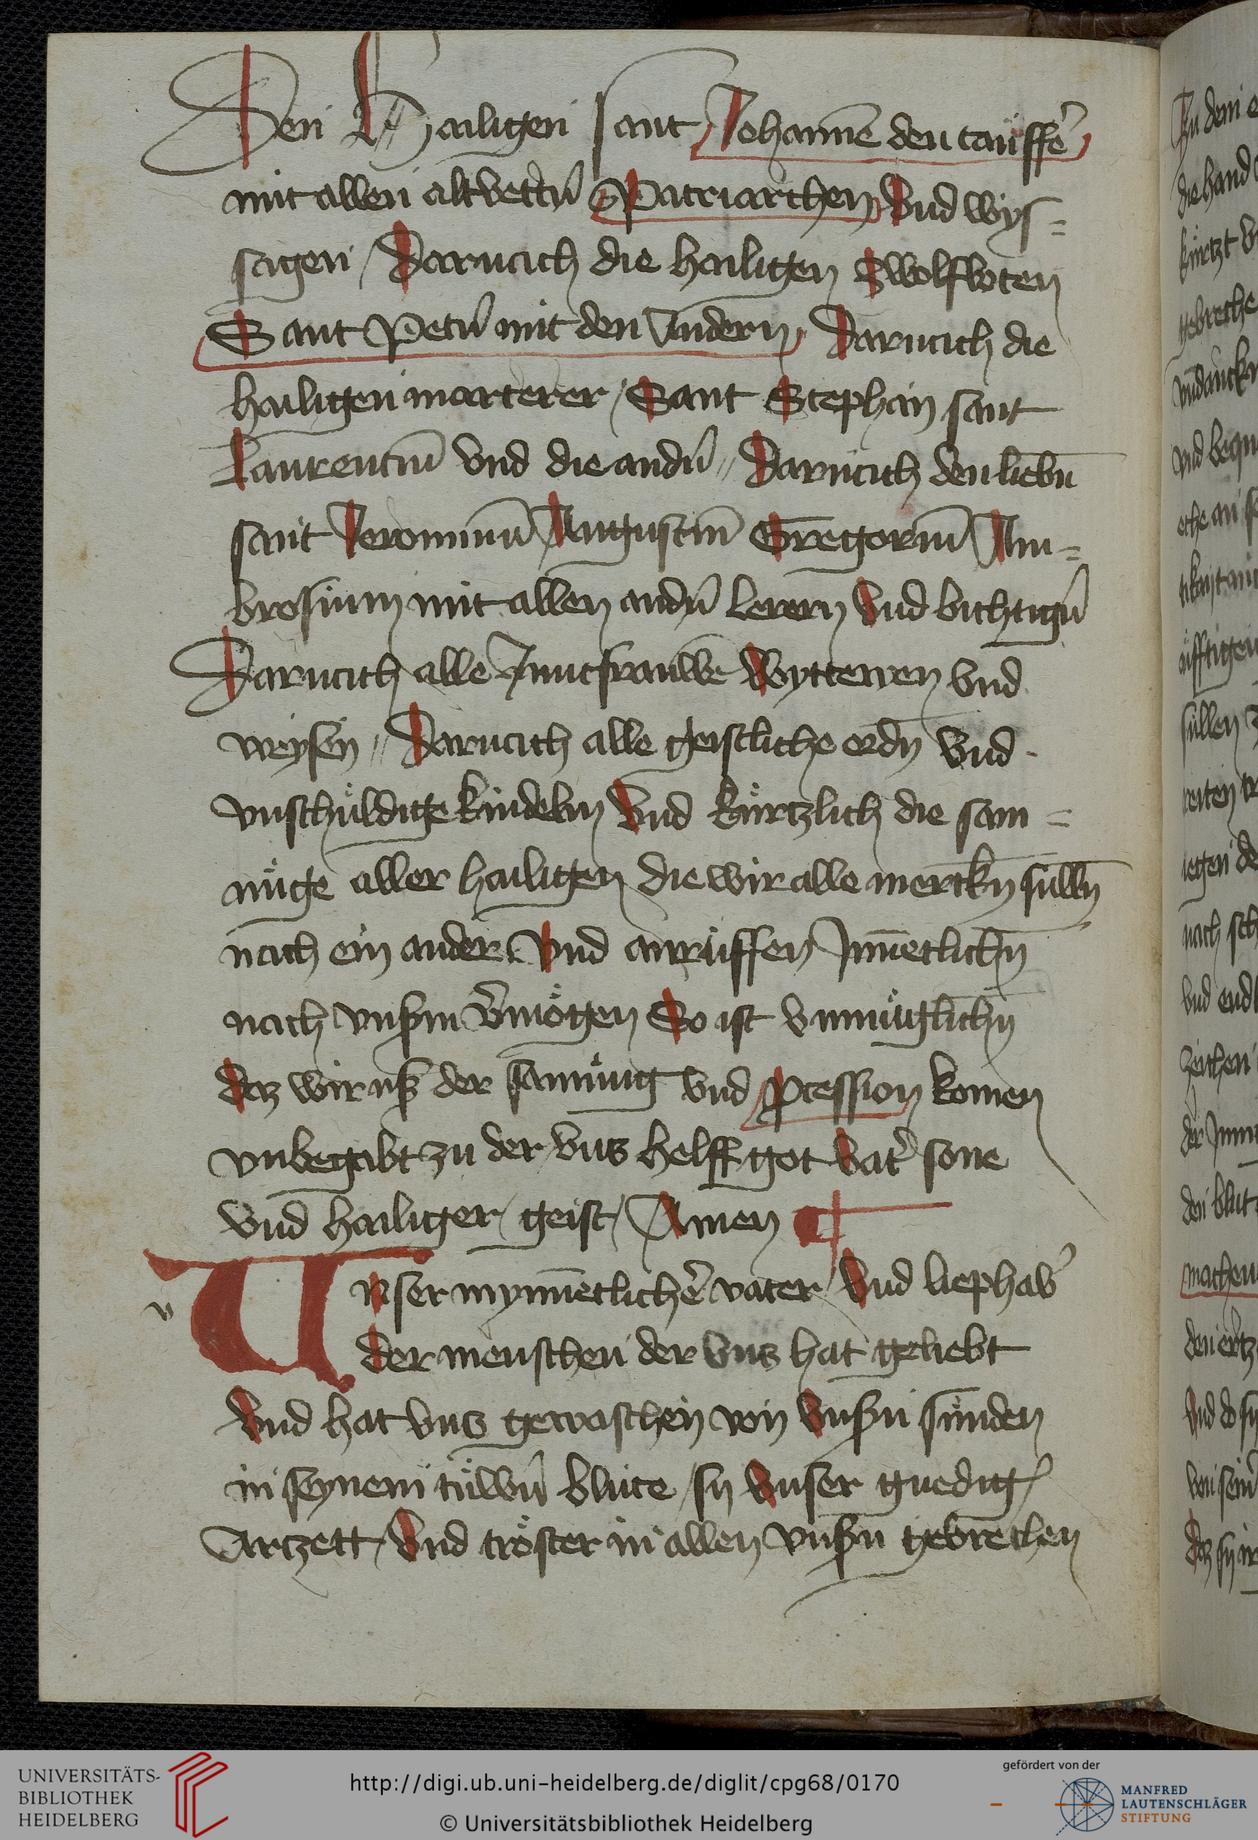 Den Hailigen sant Johannē den tauffer̄
mit allen altvettern̄ Patriarchen Vnd wys=
sagen / Darnach die hailigen Zwolfboten
Sant Petrū mit den Andern / Darnach die
hailigen marterer / Sant Stephan sant
Laurentiū vnd die andn̄ // Darnach den liebn̄
sant Jeronimū Augustinū Gregoriū Am=
brosium mit allen andn̄ lerern Vnd bichtign̄
Darnach alle Junckfrauwē Wyttewen Vnd
weysen // Darnach alle geistliche ordn̄ Vnd
vnschuldige kindelin Vnd kürtzlich die sam=
nüge aller hailigen die wir alle merckn̄ sulln̄
nach ein ander Vnd anruffen Jnnētlichn̄
nach vnßm v̄mögen So ist vnmüglichn̄
daz wir uß der samnüng vnd pcession komen
vnbegabt zu der vns helff got Vat̄ sone
Vnd hailiger geist / Amen
Vnser mynnētlicher̄ vater Vnd liephab̄
v
der menschen der vns hat geliebt
Vnd hat vns gewaschen von Vnßn sünden
in seynem tüwrn̄ blute / sy Vnser gnedig
Artzett / Vnd tröster in allen vnßn gebrechen
UNIVERSITÄTS-
BIBLIOTHEK
HEIDELBERG
http://digi.ub.uni-heidelberg.de/diglit/cpg68/0170
© Universitätsbibliothek Heidelberg
gefördert von der
MANFRED
LAUTENSCHLÄGER
STIFTUNG